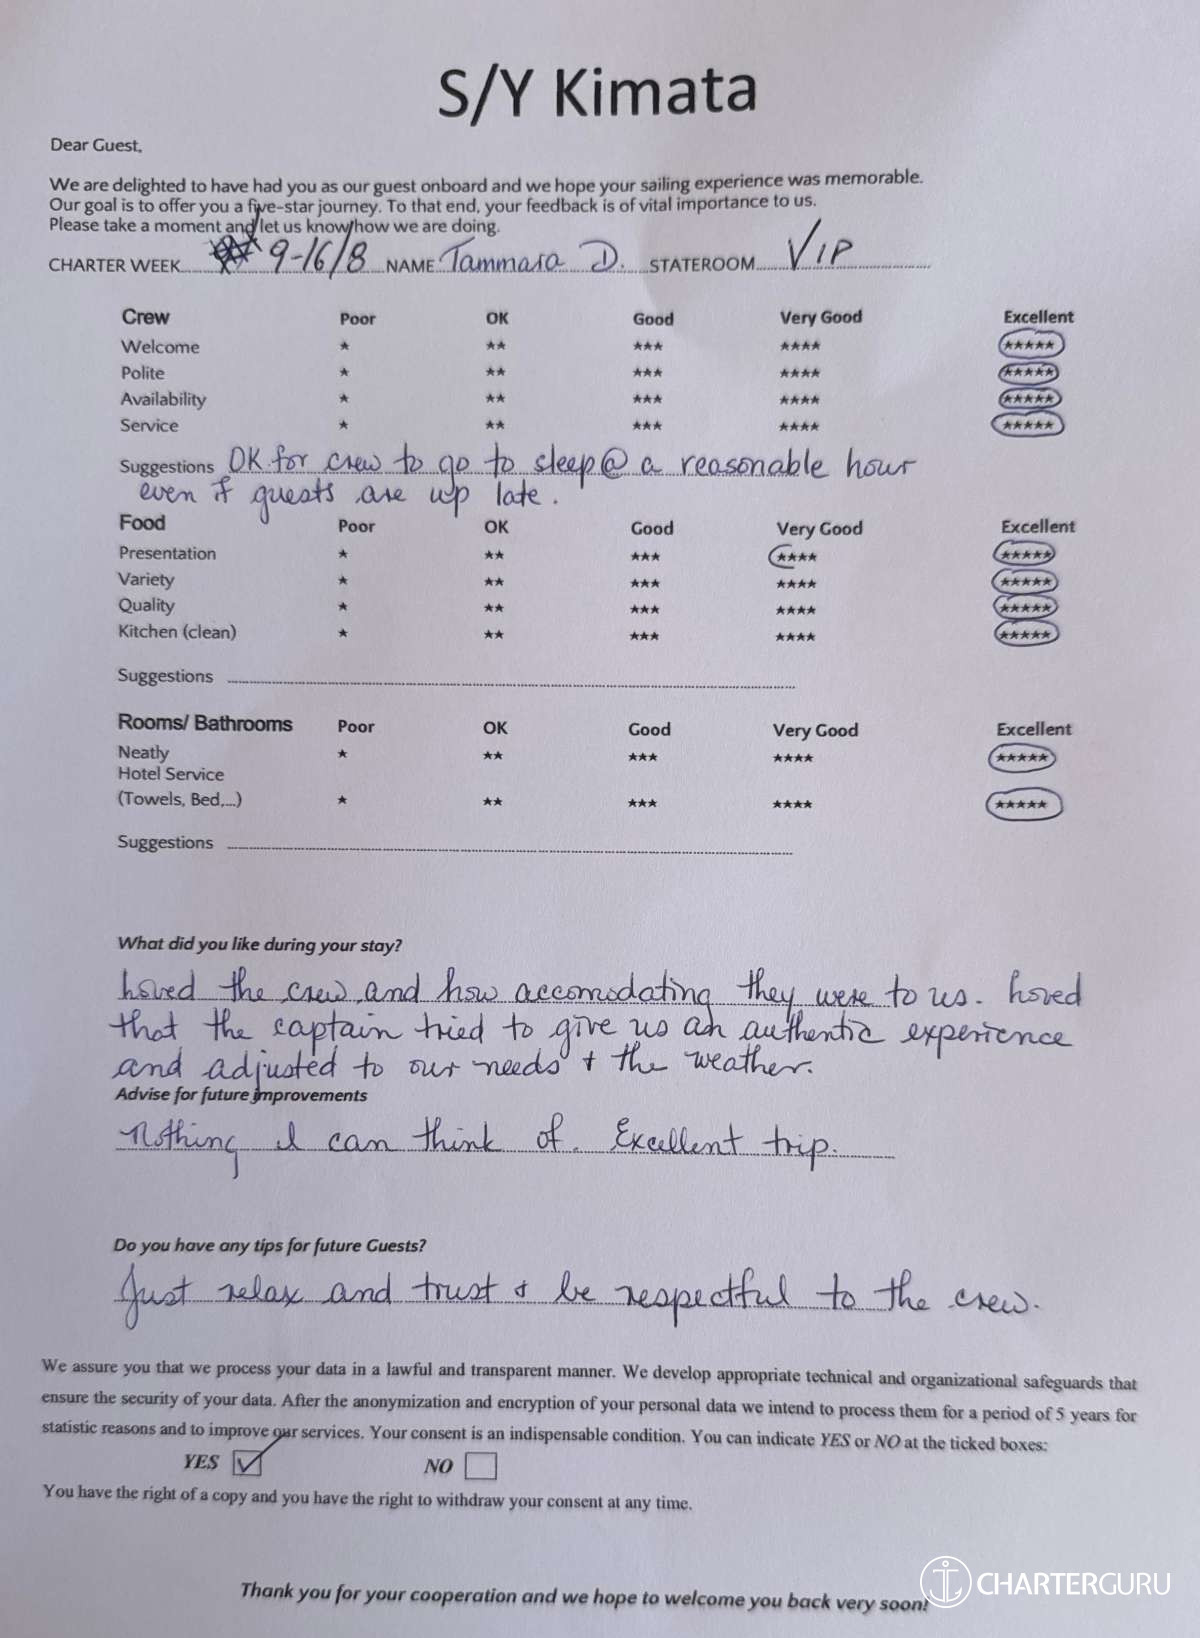 S/Y Kimata
Dear Guest,
We are delighted to have had you as our guest onboard and we hope your sailing experience was memorable.
Our goal is to offer you a five-star journey. To that end, your feedback is of vital importance to us.
Please take a moment and let us know how we are doing.
CHARTER WEEK 9-16/8 NAME Tammara D. STATEROOM VIP
Crew Poor OK Good Very Good Excellent
Welcome ★ ★★ ★★★ ★★★★ ★★★★★
Polite ★ ★★ ★★★ ★★★★ ★★★★★
Availability ★ ★★ ★★★ ★★★★ ★★★★★
Service ★ ★★ ★★★ ★★★★ ★★★★★
Suggestions OK for crew to go to sleep @ a reasonable hour
even if guests are up late.
Food Poor OK Good Very Good Excellent
Presentation ★ ★★ ★★★ ★★★★ ★★★★★
Variety ★ ★★ ★★★ ★★★★ ★★★★★
Quality ★ ★★ ★★★ ★★★★ ★★★★★
Kitchen (clean) ★ ★★ ★★★ ★★★★ ★★★★★
Suggestions
Rooms/ Bathrooms Poor OK Good Very Good Excellent
Neatly ★ ★★ ★★★ ★★★★ ★★★★★
Hotel Service
(Towels, Bed,...) ★ ★★ ★★★ ★★★★ ★★★★★
Suggestions
What did you like during your stay?
Loved the crew and how accomodating they were to us. Loved
that the captain tried to give us an authentic experience
and adjusted to our needs + the weather.
Advise for future improvements
Nothing I can think of. Excellent trip.
Do you have any tips for future Guests?
Just relax and trust + be respectful to the crew.
We assure you that we process your data in a lawful and transparent manner. We develop appropriate technical and organizational safeguards that
ensure the security of your data. After the anonymization and encryption of your personal data we intend to process them for a period of 5 years for
statistic reasons and to improve our services. Your consent is an indispensable condition. You can indicate YES or NO at the ticked boxes:
YES ☑ NO ☐
You have the right of a copy and you have the right to withdraw your consent at any time.
Thank you for your cooperation and we hope to welcome you back very soon!
CHARTERGURU